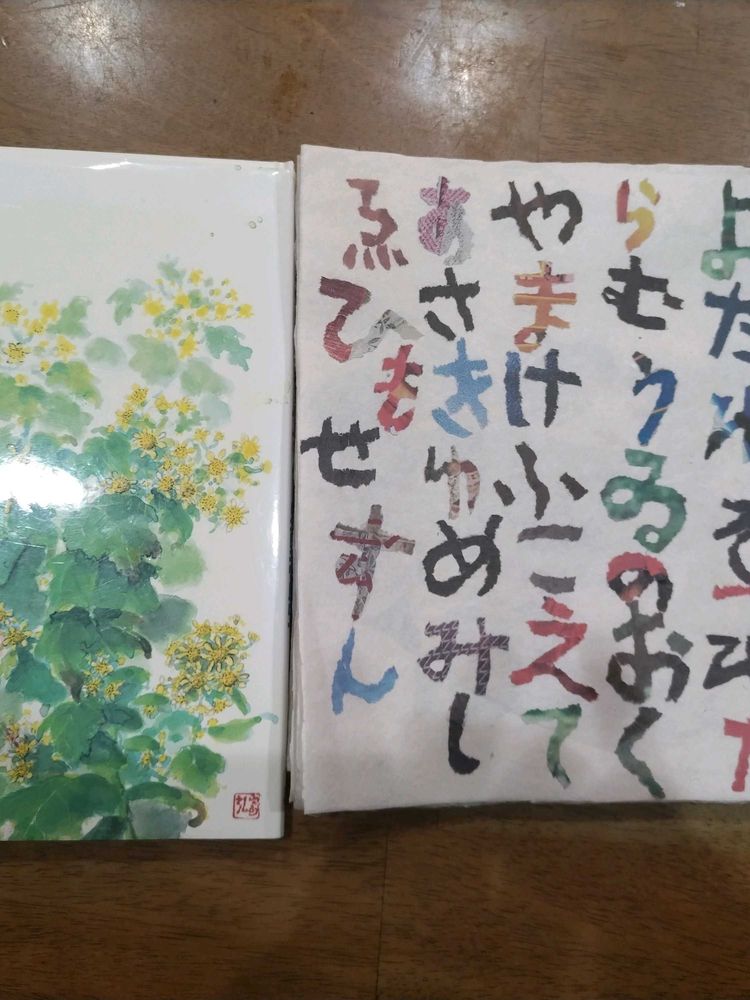 よたれそつねな
らむうゐのおく
やまけふこえて
あさきゆめみし
ゑひもせすん